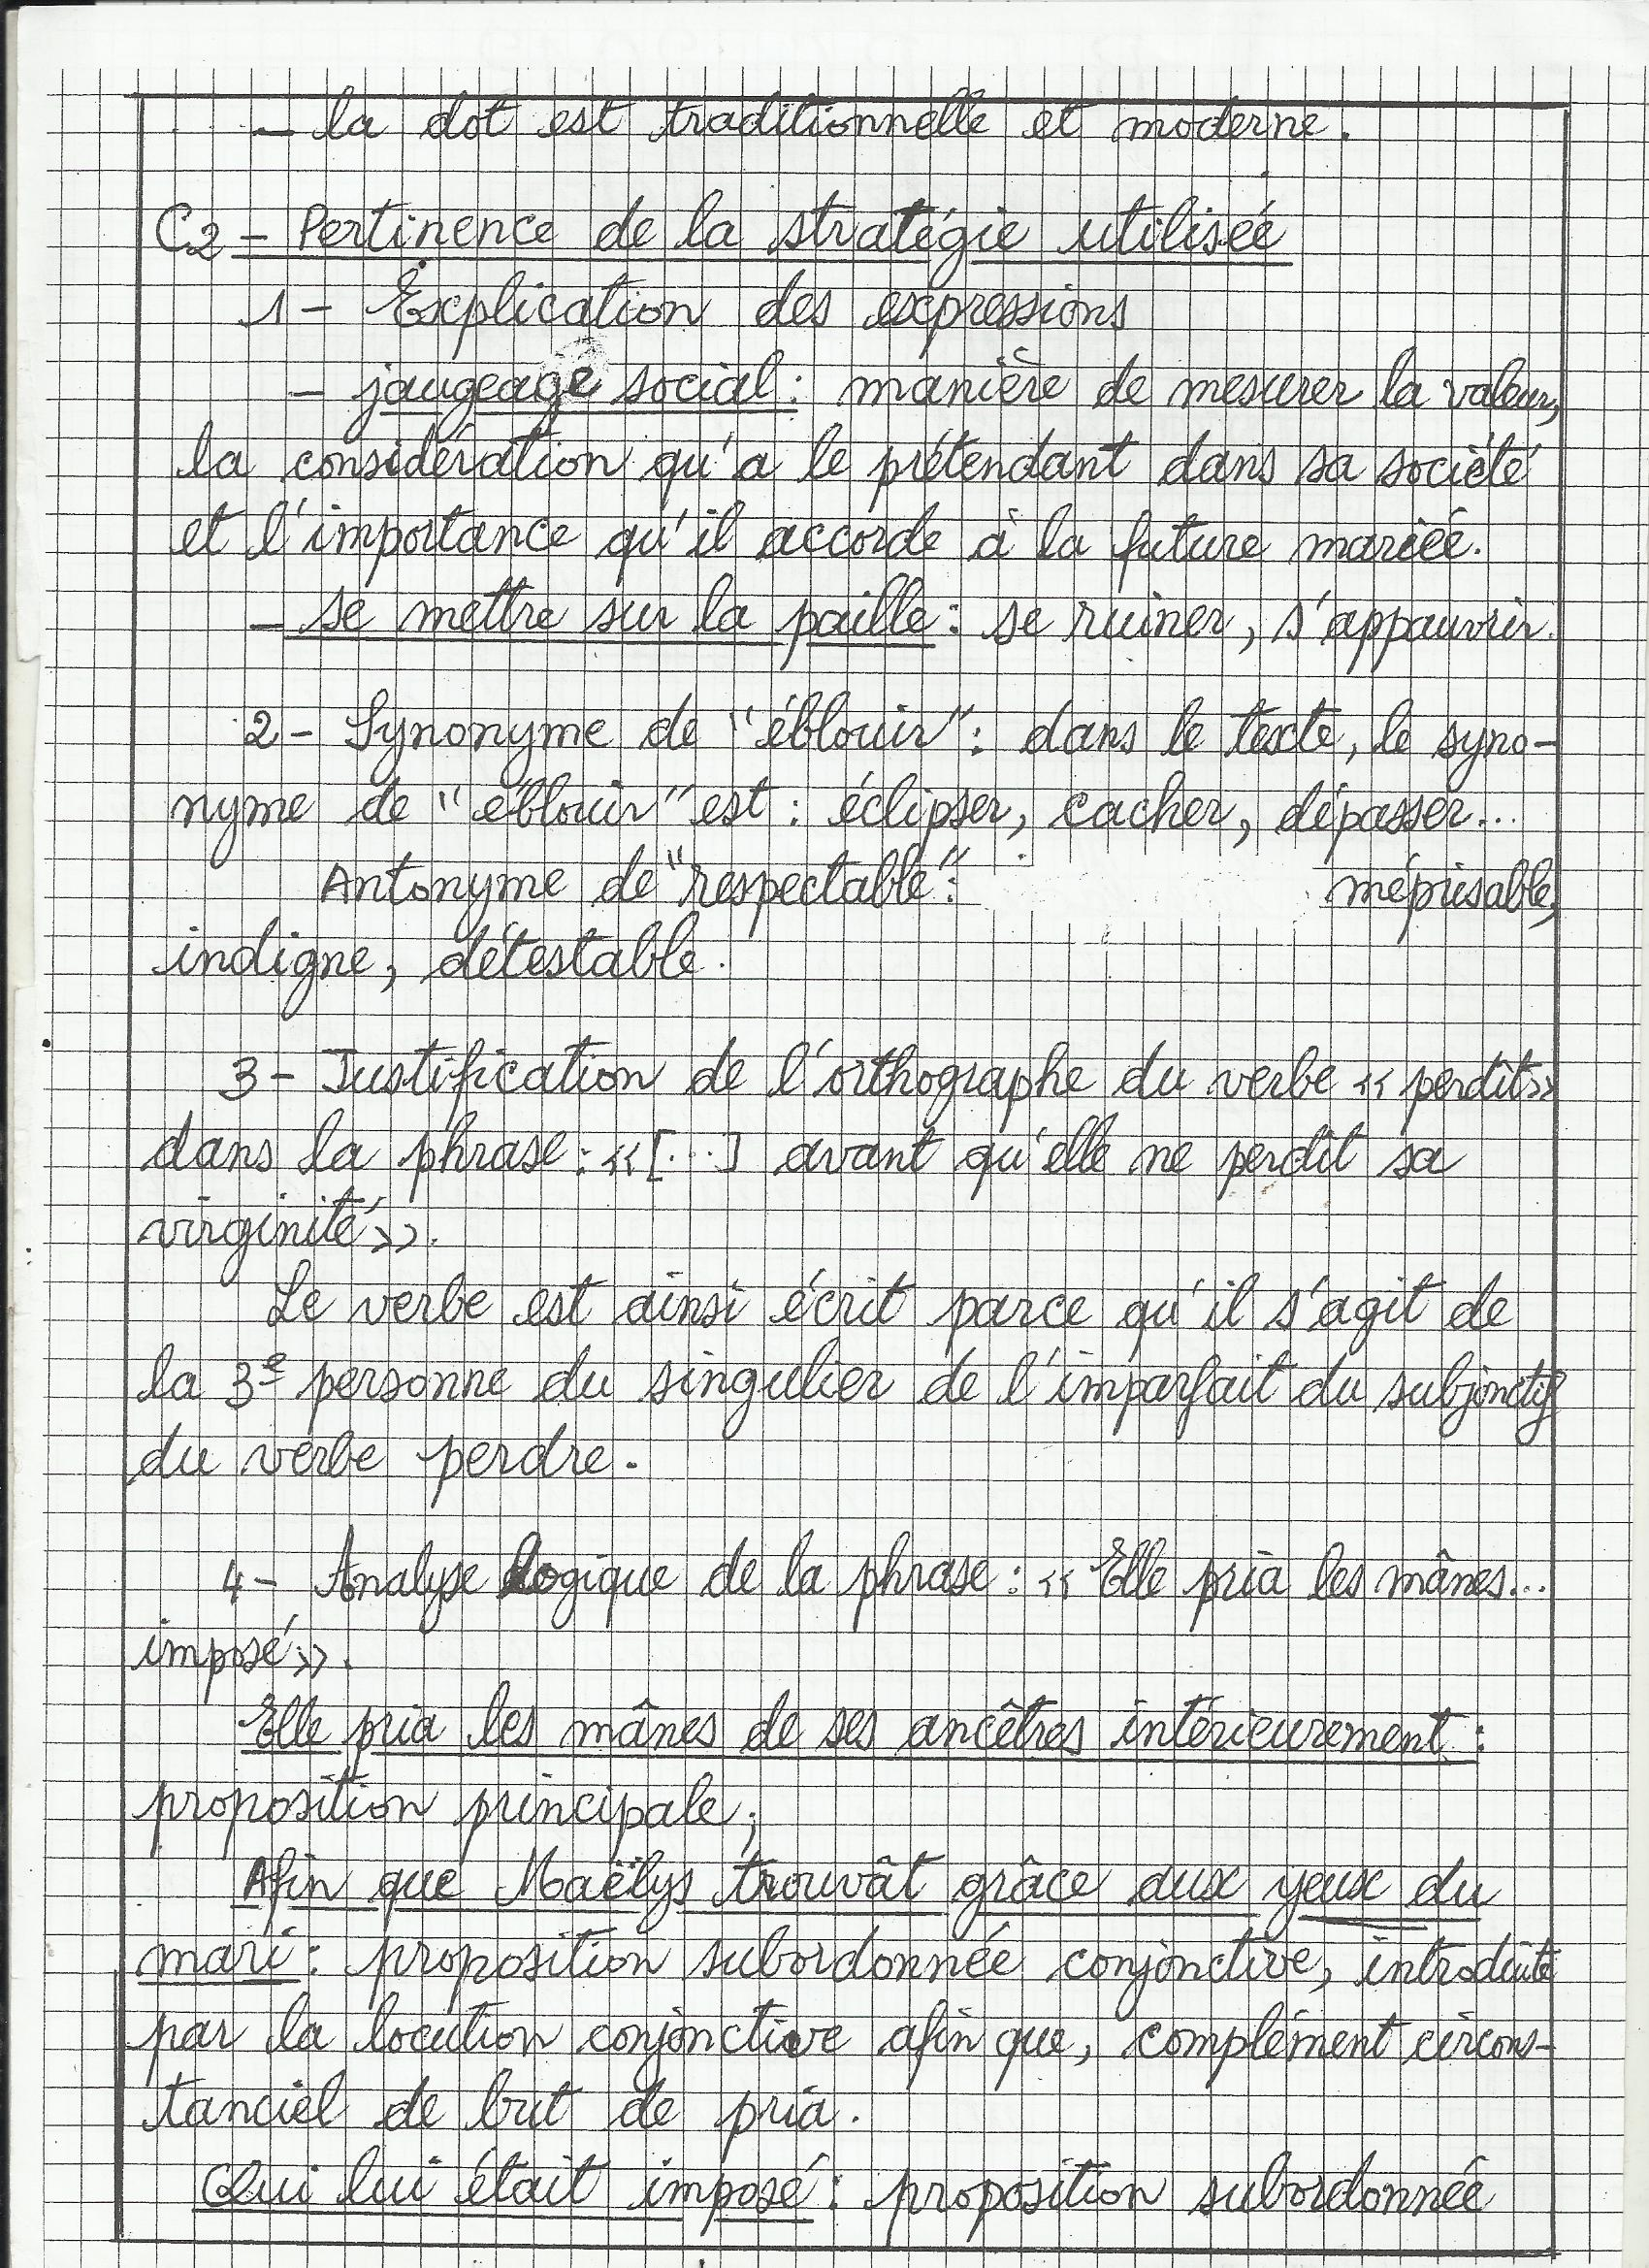 - la dot est traditionnelle et moderne.
C2 - Pertinence de la stratégie utilisée
1 - Explication des expressions
- jaugeage social : manière de mesurer la valeur,
la considération qu'a le prétendant dans sa société
et l'importance qu'il accorde à la future mariée.
- se mettre sur la paille : se ruiner, s'appauvrir.
2 - Synonyme de "éblouir" : dans le texte, le syno-
nyme de "éblouir" est : éclipser, cacher, dépasser...
Antonyme de "respectable" : méprisable,
indigne, détestable.
3 - Justification de l'orthographe du verbe « perdît »
dans la phrase : « [...] avant qu'elle ne perdît sa
virginité ».
Le verbe est ainsi écrit parce qu'il s'agit de
la 3e personne du singulier de l'imparfait du subjonctif
du verbe perdre.
4 - Analyse logique de la phrase : « Elle pria les mânes...
imposé ».
Elle pria les mânes de ses ancêtres intérieurement :
proposition principale ;
Afin que Maëlys trouvât grâce aux yeux du
mari : proposition subordonnée conjonctive, introduite
par la locution conjonctive afin que, complément circons-
tanciel de but de pria.
Qui lui était imposé : proposition subordonnée